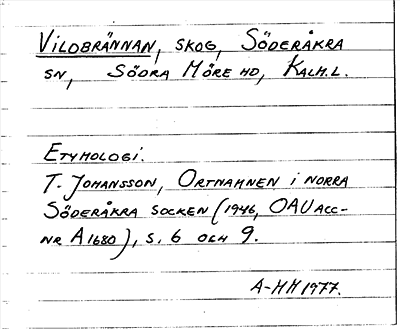 VILDBRÄNNAN, SKOG, SÖDERÅKRA
SN, SÖDRA MÖRE HD, KALM.L.
ETYMOLOGI.
T. JOHANSSON, ORTNAMNEN I NORRA
SÖDERÅKRA SOCKEN (1946, OAU ACC-
NR A1680), S. 6 OCH 9.
A-MH 1977.